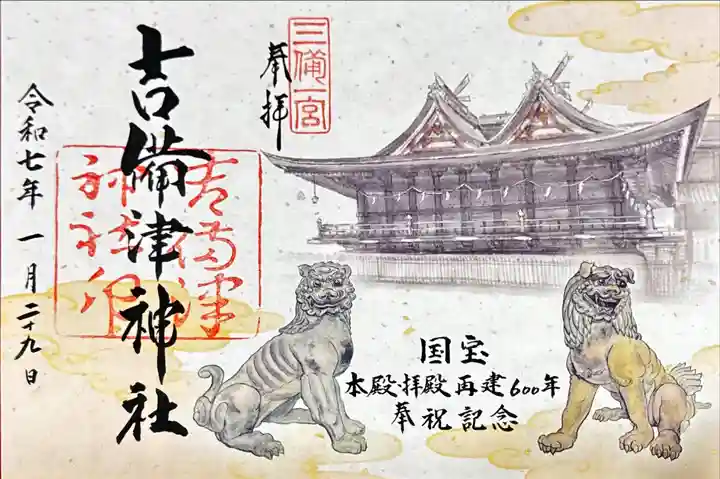 三備一宮
奉拝
吉備津神社
吉備津
神社印
令和七年 一月二十九日
国宝
本殿・拝殿再建600年
奉祝記念